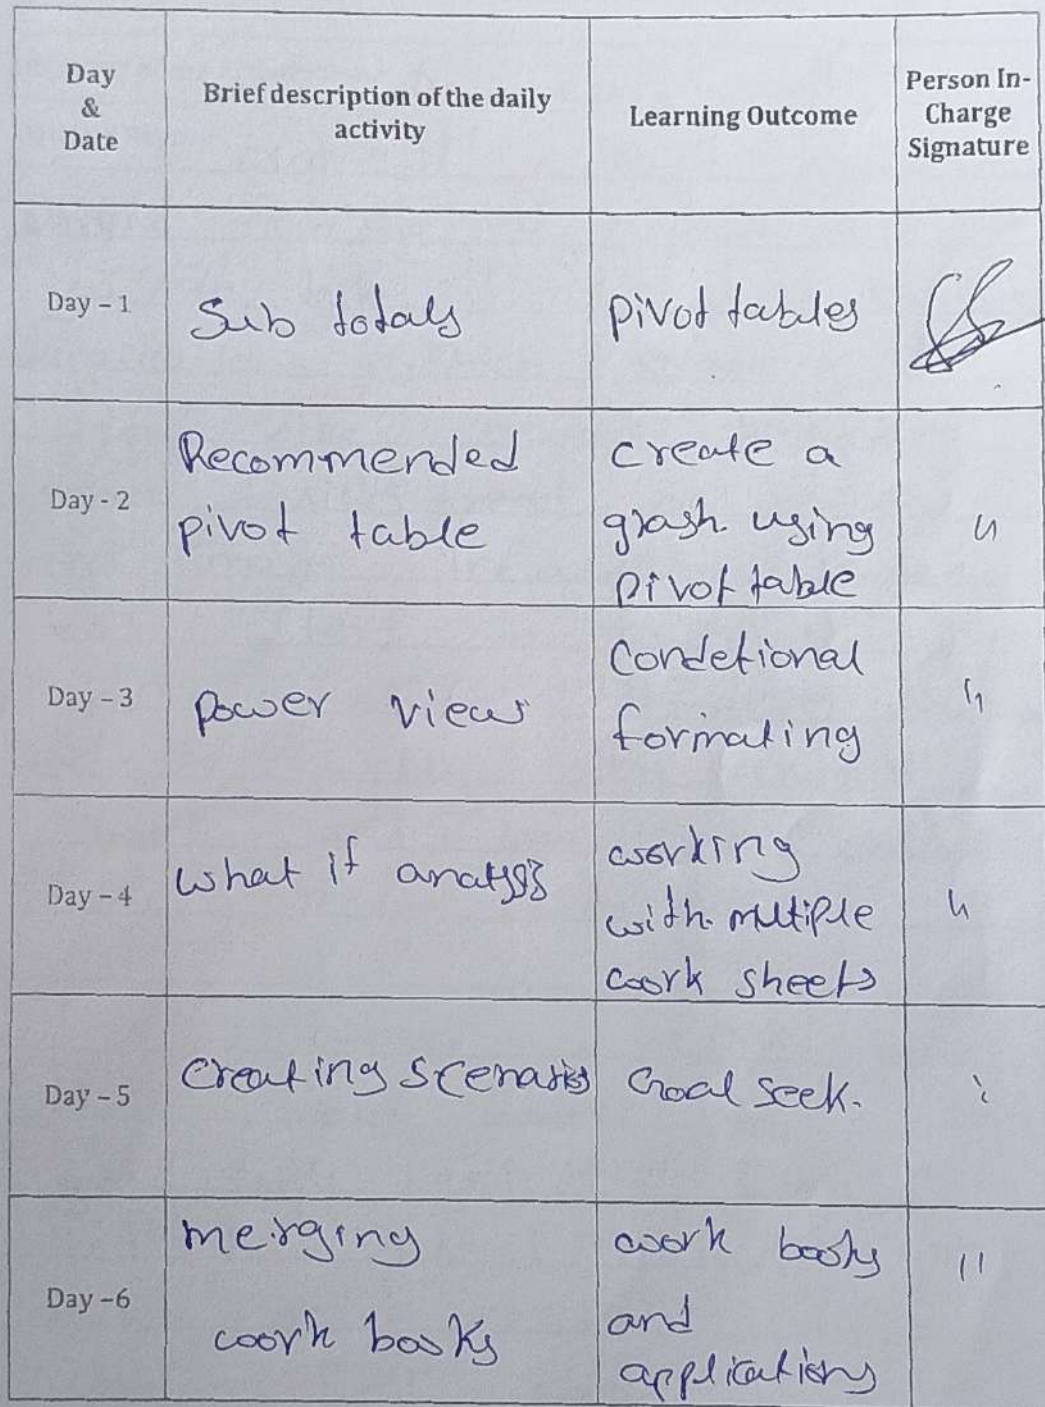 Day
&
Date
Brief description of the daily
activity
Learning Outcome
Person In-
Charge
Signature
Day – 1
Sub totals
pivot tables
Day - 2
Recommended
pivot table
create a
grash using
pivot table
Day – 3
power view
Condetional
formating
Day – 4
what if analysis
working
with multiple
work sheets
Day – 5
Creating scenarios
Goal seek.
Day –6
merging
work books
work books
and
applications